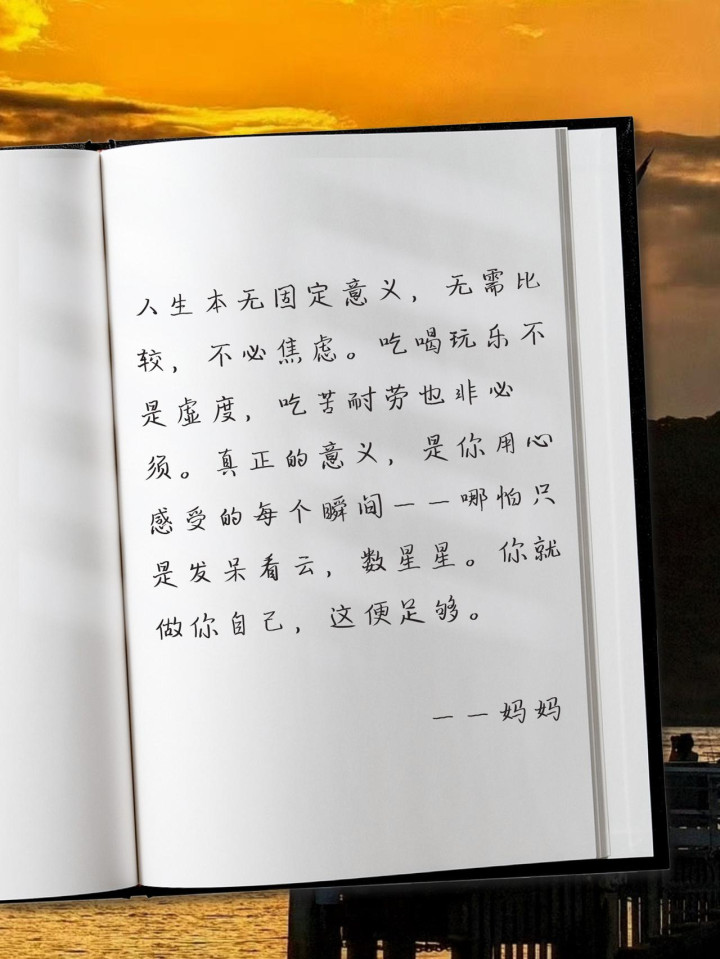 人生本无固定意义，无需比
较，不必焦虑。吃喝玩乐不
是虚度，吃苦耐劳也非必
须。真正的意义，是你用心
感受的每个瞬间——哪怕只
是发呆看云，数星星。你就
做你自己，这便足够。
——妈妈